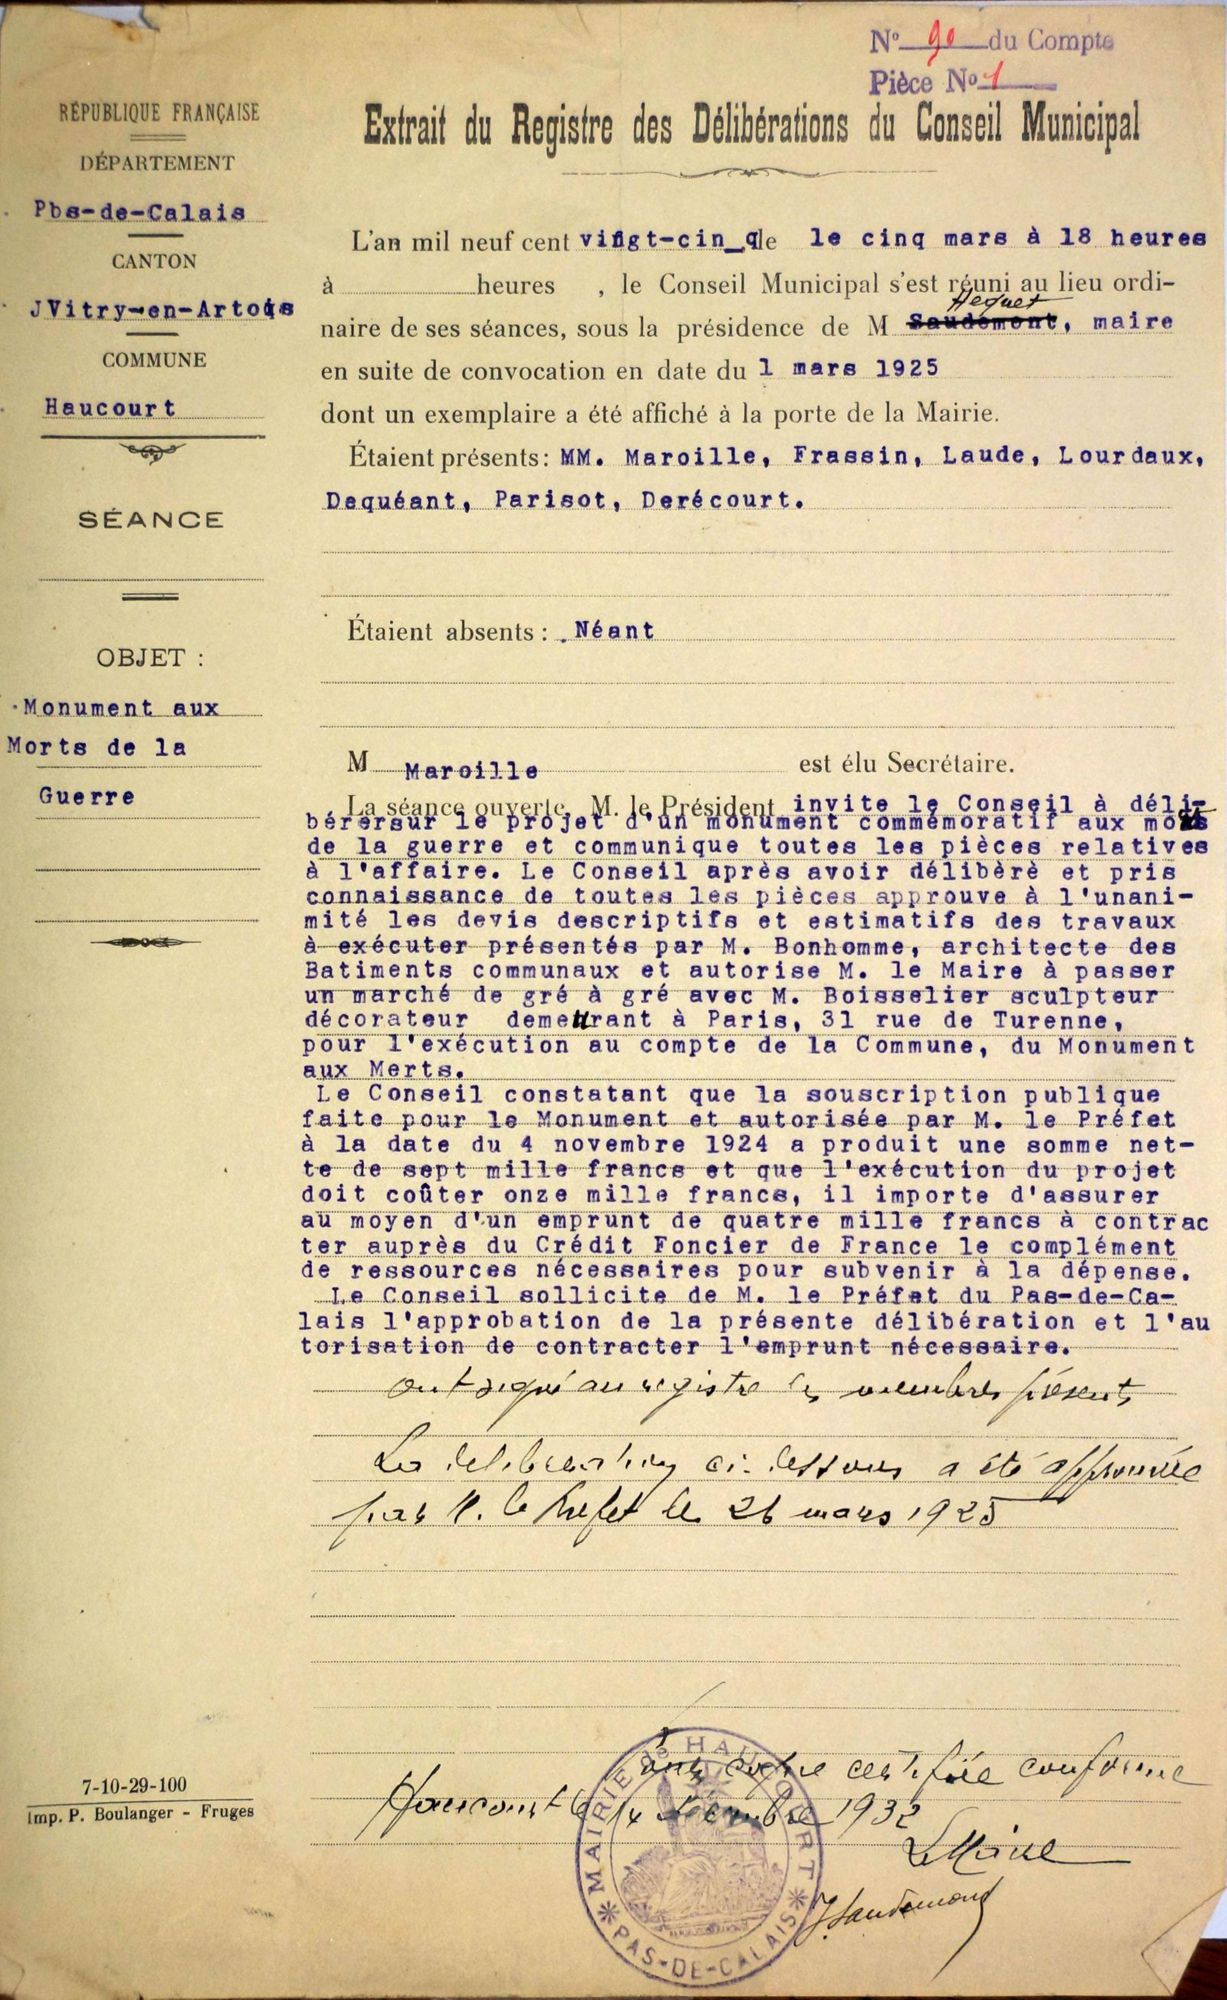 N° 90 du Compte
Pièce N° 1
RÉPUBLIQUE FRANÇAISE
DÉPARTEMENT
Pbs-de-Calais
CANTON
JVitry-en-Artois
COMMUNE
Haucourt
SÉANCE
OBJET :
Monument aux
Morts de la
Guerre
7-10-29-100
Imp. P. Boulanger - Fruges
Extrait du Registre des Délibérations du Conseil Municipal
L'an mil neuf cent vingt-cin_qle le cinq mars à 18 heures
à heures , le Conseil Municipal s'est réuni au lieu ordi-
Hequet
naire de ses séances, sous la présidence de M Saudemont, maire
en suite de convocation en date du 1 mars 1925
dont un exemplaire a été affiché à la porte de la Mairie.
Étaient présents : MM. Maroille, Frassin, Laude, Lourdaux,
Dequéant, Parisot, Derécourt.
Étaient absents : . Néant
M Maroille est élu Secrétaire.
La séance ouverte, M. le Président invite le Conseil à déli-
bérersur le projet d'un monument commémoratif aux morts
de la guerre et communique toutes les pièces relatives
à l'affaire. Le Conseil après avoir délibèrè et pris
connaissance de toutes les pièces approuve à l'unani-
mité les devis descriptifs et estimatifs des travaux
à exécuter présentés par M. Bonhomme, architecte des
Batiments communaux et autorise M. le Maire à passer
un marché de gré à gré avec M. Boisselier sculpteur
décorateur demeurant à Paris, 31 rue de Turenne,
pour l'exécution au compte de la Commune, du Monument
aux Merts.
Le Conseil constatant que la souscription publique
faite pour le Monument et autorisée par M. le Préfet
à la date du 4 novembre 1924 a produit une somme net-
te de sept mille francs et que l'exécution du projet
doit coûter onze mille francs, il importe d'assurer
au moyen d'un emprunt de quatre mille francs à contrac
ter auprès du Crédit Foncier de France le complément
de ressources nécessaires pour subvenir à la dépense.
Le Conseil sollicite de M. le Préfet du Pas-de-Ca-
lais l'approbation de la présente délibération et l'au
torisation de contracter l'emprunt nécessaire.
ont signé au registre les membres présents
La deliberation ci-dessous a été approuvée
par M. le Préfet le 26 mars 1925
Pour copie certifiée conforme
Haucourt le 14 décembre 1932
Le Maire
J Saudemont
MAIRIE de HAUCOURT
* PAS-DE-CALAIS *